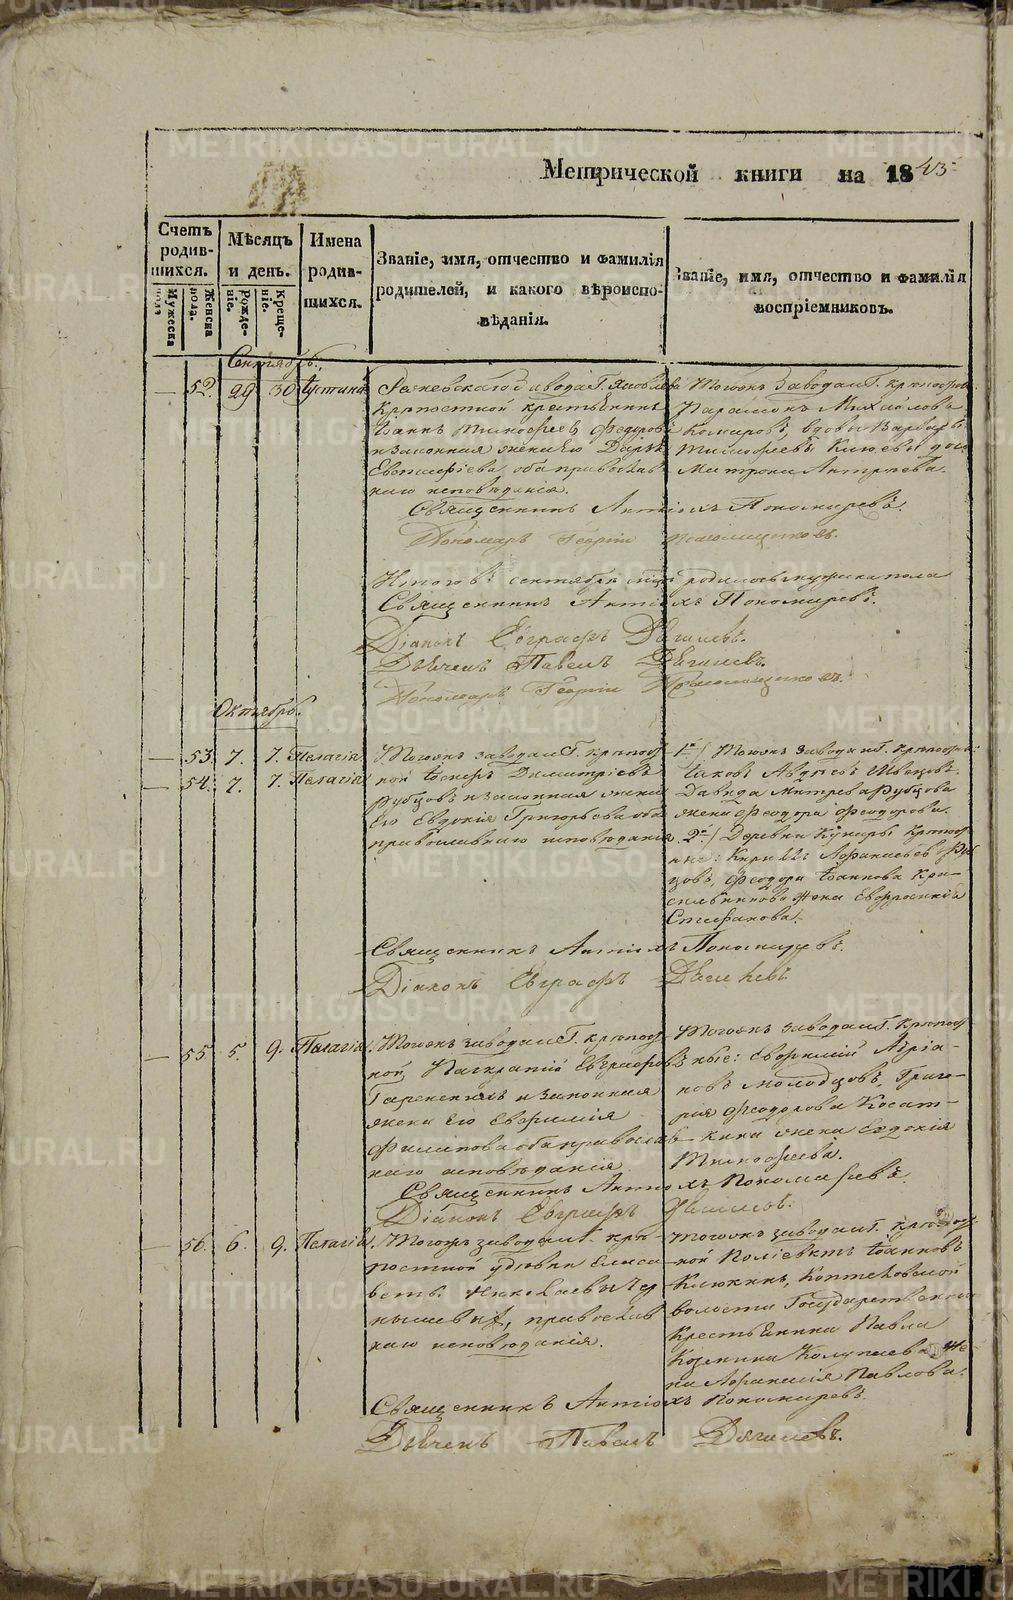 Метрической книги на 1843
Счетъ родив-
шихся.
Мужеска пола
Женска пола.
Мѣсяцъ и день.
Рожде-
ніе.
Креще-
ніе.
Имена родив-
шихся.
Званіе, имя, отчество и фамилія
родителей, и какого вѣроиспо-
вѣданія.
Званіе, имя, отчество и фамилія
воспріемниковъ.
Сентябрь.
— 52. 29 30 Іустина
завода Г. Яковлева
Крѣпостной крестьянинъ
Іоаннъ Тимофеевъ Федоровъ
и законная жена его Дарья
оба православ-
наго исповѣданія.
Тогожъ завода Г. крѣпостн.
Парамонъ Михайловъ
Комаровъ, вдовы Варвары
Тимофеевы дочь
Матрона
Священникъ Антіохъ Пономаревъ.
Пономарь Георгій
Итого въ сентябрѣ родилось мужска пола
Священникъ Антіохъ Пономаревъ.
Діаконъ Евграфъ Дягилевъ.
Дьячекъ Павелъ Дягилевъ.
Пономарь Георгій
Октябрь.
— 53. 7. 7. Пелагія
— 54. 7. 7. Пелагія
Тогожъ завода Г. крѣпост-
ной Димитріевъ
Рубцовъ и законная жена
его Евдокія Григорьева оба
православнаго исповѣданія
1й/ Тогожъ завода Г. крѣпостн.
Іаковъ Авдѣевъ Швецовъ.
Давида Рубцова
жена Феодора Феодорова.
2й/ Деревни Кунары крѣпост-
ные: Кириллъ Афанасьевъ Руб-
цовъ, Феодора Іоаннова Кра-
сильникова жена Евфросинія
Стефанова.
Священникъ Антіохъ Пономаревъ.
Діаконъ Евграфъ Дягилевъ
— 55. 5. 9. Пелагія
Тогожъ завода Г. крѣпост-
ной Панкратій Евграфовъ
и законная
жена его Евфимія
Филипова оба православ-
наго исповѣданія.
Тогожъ завода Г. крѣпост-
ные: Евфимій Адріа-
новъ Молодцовъ, Григо-
рія Феодорова Косат-
кина жена Евдокія
Тимофеева.
Священникъ Антіохъ Пономаревъ.
Діаконъ Евграфъ Дягилевъ.
— 56. 6. 9. Пелагія.
Тогожъ завода Г. крѣ-
постной вдовы Елиса-
веты Николаевы Чер-
нышевы, православ-
наго исповѣданія.
Тогожъ завода Г. крѣпост-
ной Поліевктъ Іоанновъ
Клюкинъ, Коптеловской
волости Государственнаго
Крестьянина Павла
Козмина Колупаева же-
на Афанасія Павлова.
Священникъ Антіохъ Пономаревъ.
Дьячекъ Павелъ Дягилевъ.